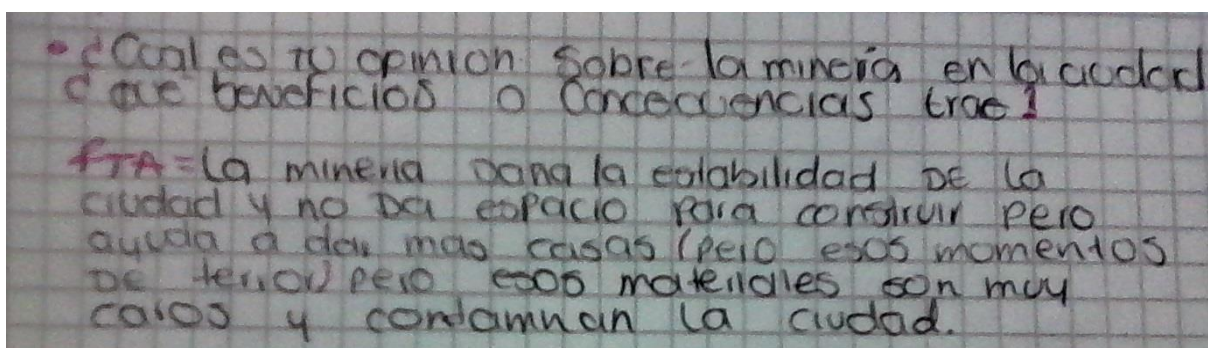 • ¿Cual es tu opinion sobre la mineria en la ciudad
¿ que beneficios o concecuencias trae?
RTA = La mineria Dana la estabilidad DE la
ciudad y no Da espacio para construir pero
ayuda a dar mas casas (pero esos momentos
DE terror) pero esos materiales son muy
caros y contamnan la ciudad.